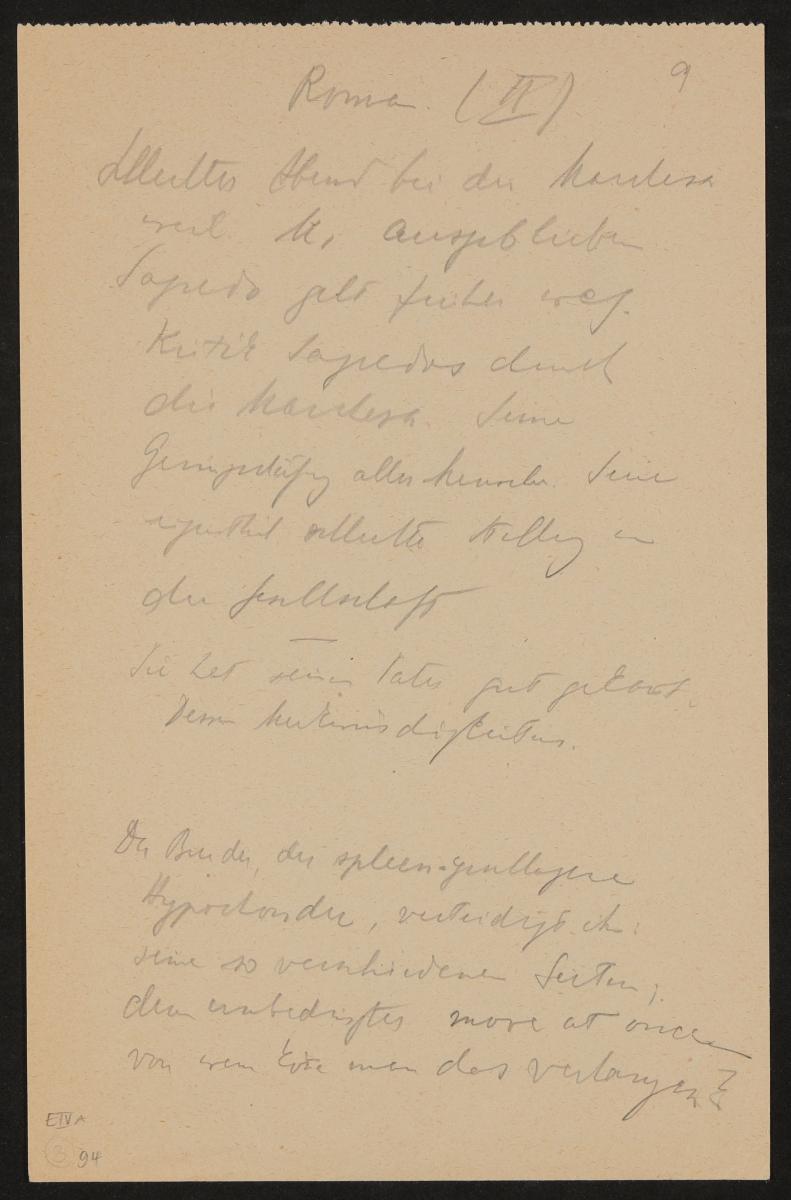 Roman. (II) 9
Schlechter Abend bei der Marchesa
weil K. ausgeblieben
Sagredo geht früher weg.
Kritik Sagredos durch
die Marchesa. Seine
Geringschätzg aller Menschen. Seine
eigentlich schlechte Stellg in
der Gesellschaft
Sie hat seinen Vater gut gekannt.
Dessen Merkwürdigkeiten.
Der Bruder, der spleen-geschlagene
Hypochonder, verteidigt ihn:
seine so verschiedenen Seiten;
dem unbedingtes move at once
von wem könne man das verlangen?
EIVA
3 94